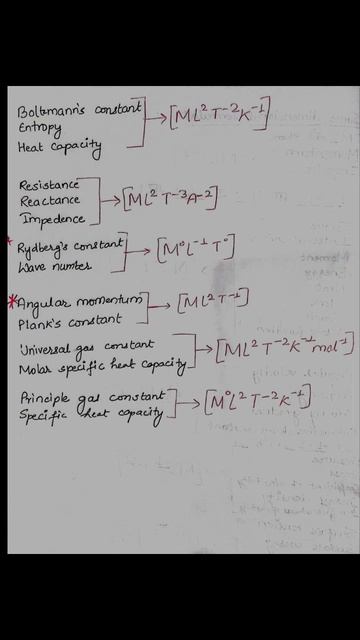 Boltzmann's constant
Entropy
Heat capacity
[ML²T⁻²K⁻¹]
Resistance
Reactance
Impedence
[ML²T⁻³A⁻²]
* Rydberg's constant
Wave number
[M⁰L⁻¹T⁰]
* Angular momentum
Plank's constant
[ML²T⁻¹]
Universal gas constant
Molar specific heat capacity
[ML²T⁻²K⁻¹mol⁻¹]
Principle gas constant
Specific heat capacity
[M⁰L²T⁻²K⁻¹]